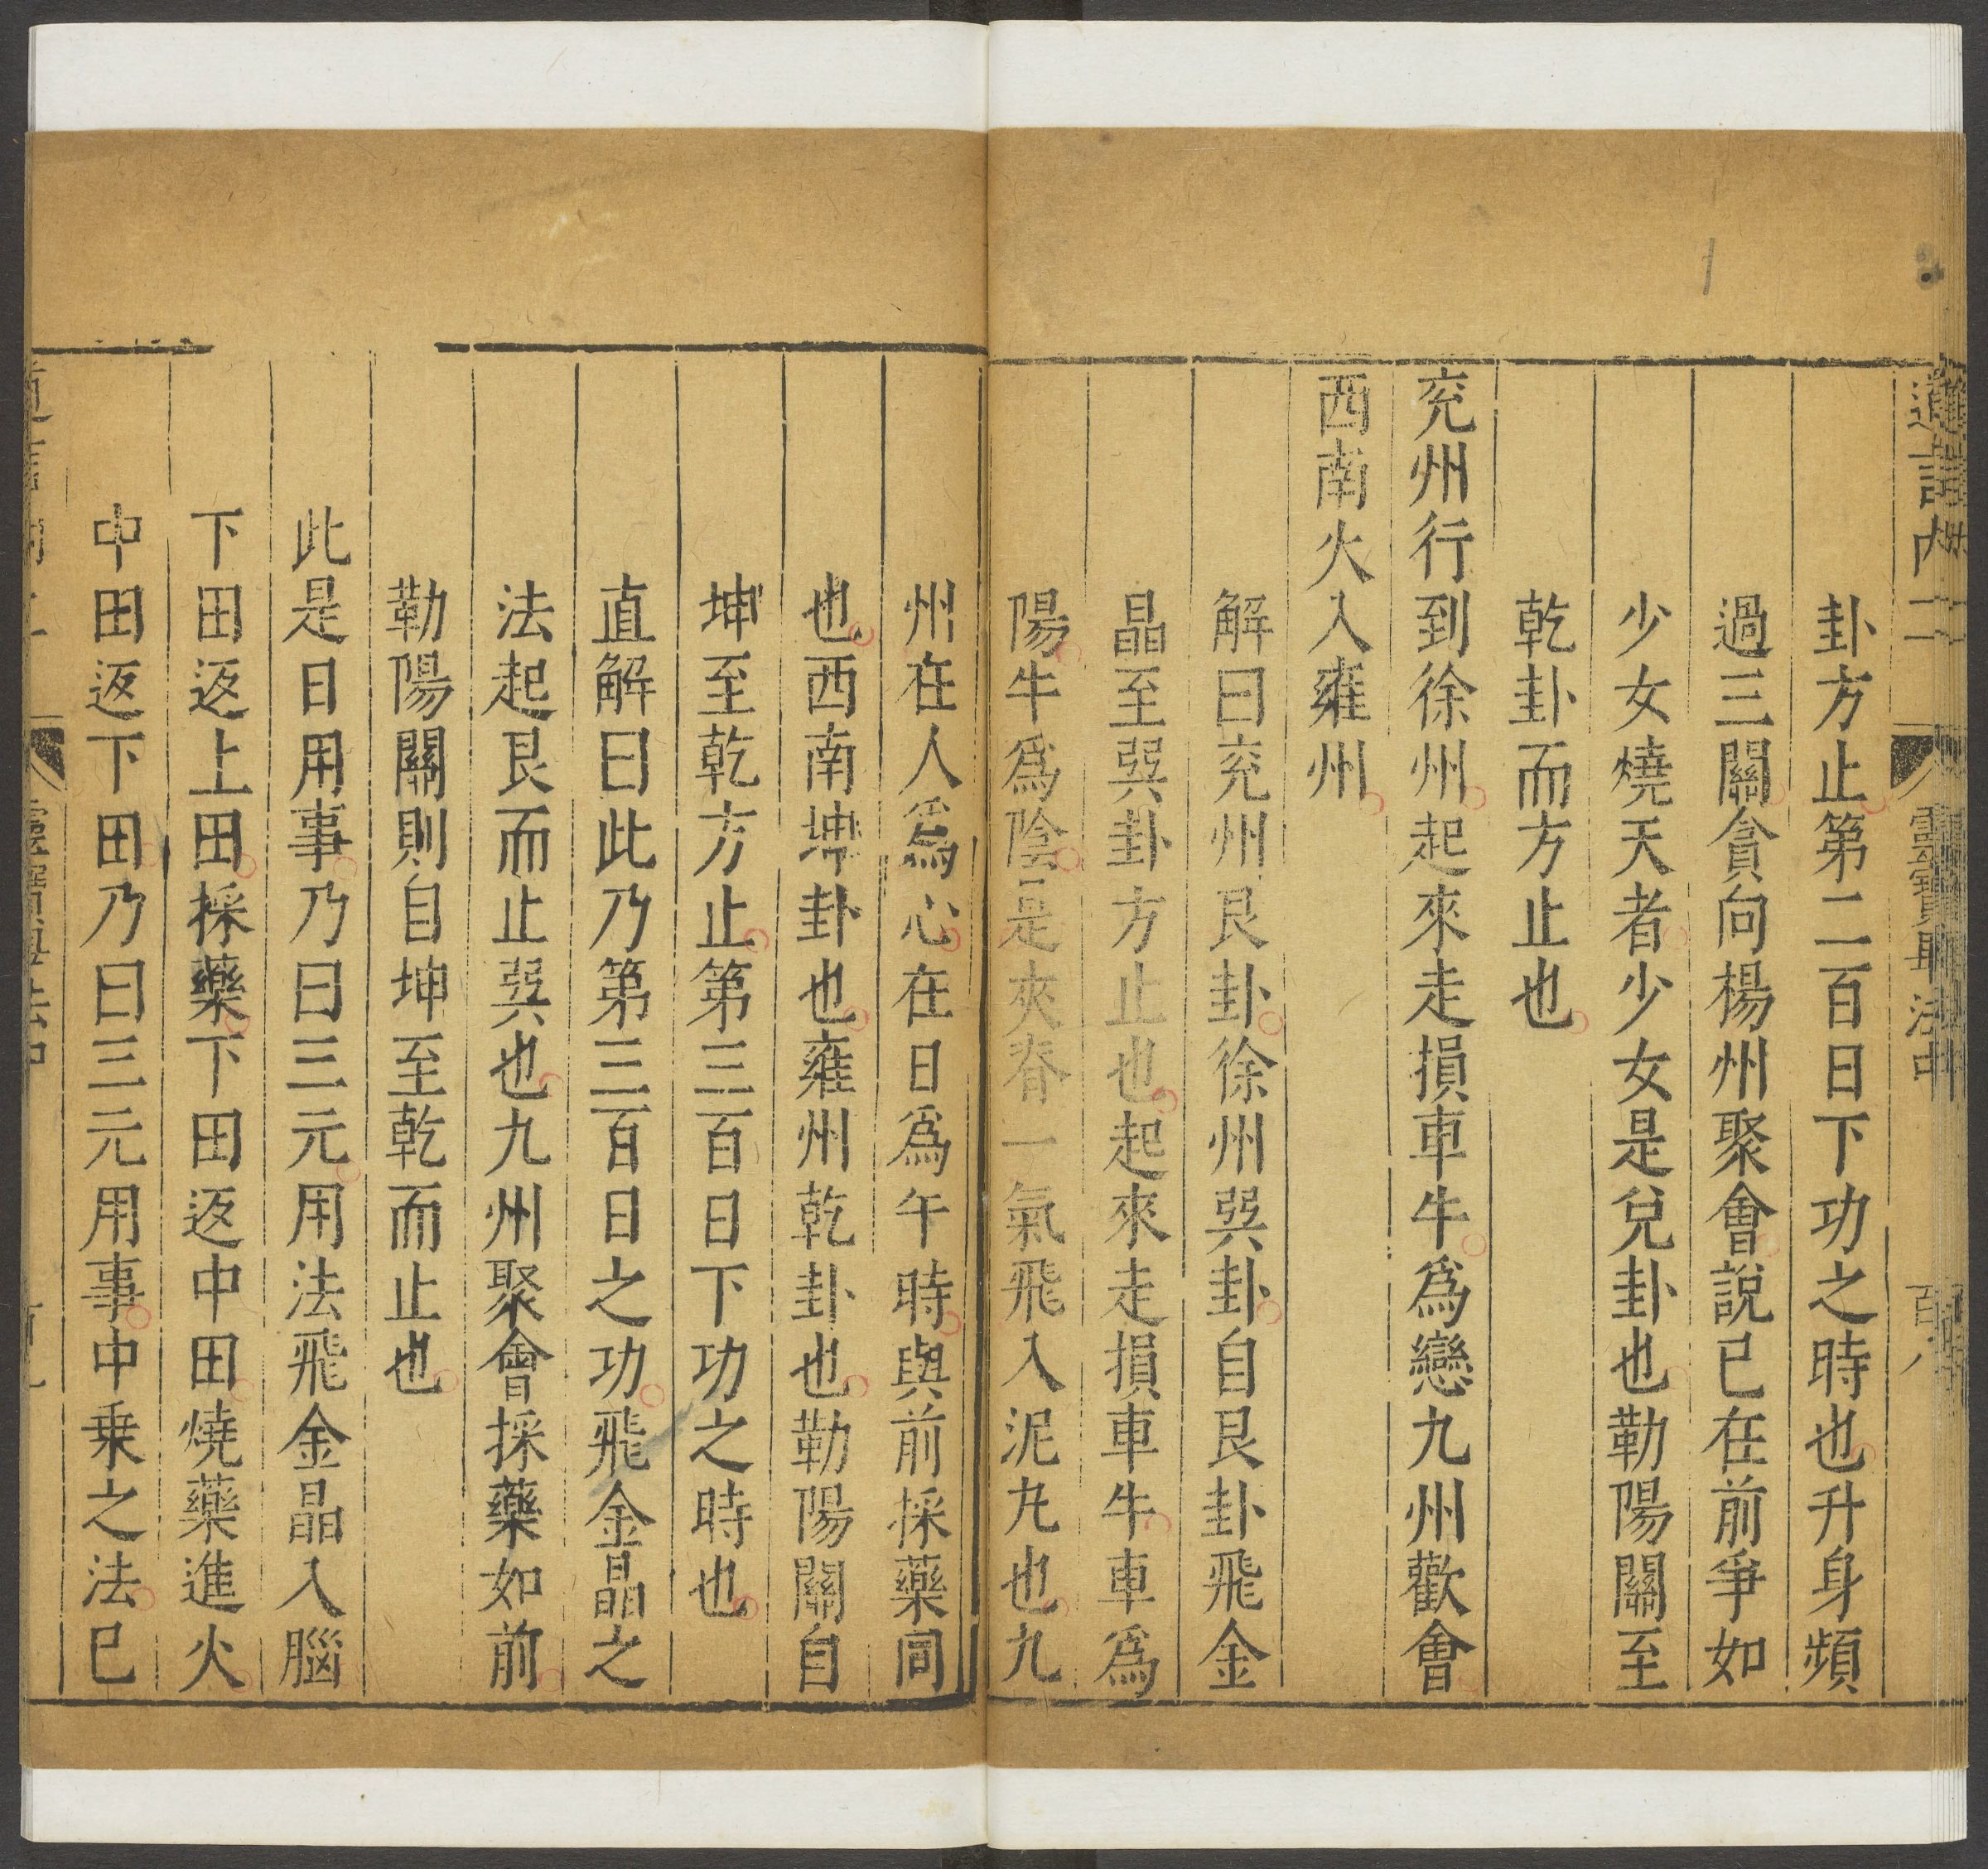 卦方止第二百日下功之時也升身頻
過三關貪向楊州聚會說已在前爭如
少女燒天者少女是兌卦也勒陽關至
乾卦而方止也
兖州行到徐州起來走損車牛爲戀九州歡會
西南火入雍州
解曰兖州艮卦徐州巽卦自艮卦飛金
晶至巽卦方止也起來走損車牛車爲
陽牛爲陰是夾脊一氣飛入泥丸也九
州在人爲心在日爲午時與前採藥同
也西南坤卦也雍州乾卦也勒陽關自
坤至乾方止第三百日下功之時也
直解曰此乃第三百日之功飛金晶之
法起艮而止巽也九州聚會採藥如前
勒陽關則自坤至乾而止也
此是日用事乃曰三元用法飛金晶入腦
下田返上田採藥下田返中田燒藥進火
中田返下田乃曰三元用事中乗之法已
靈寶畢法中